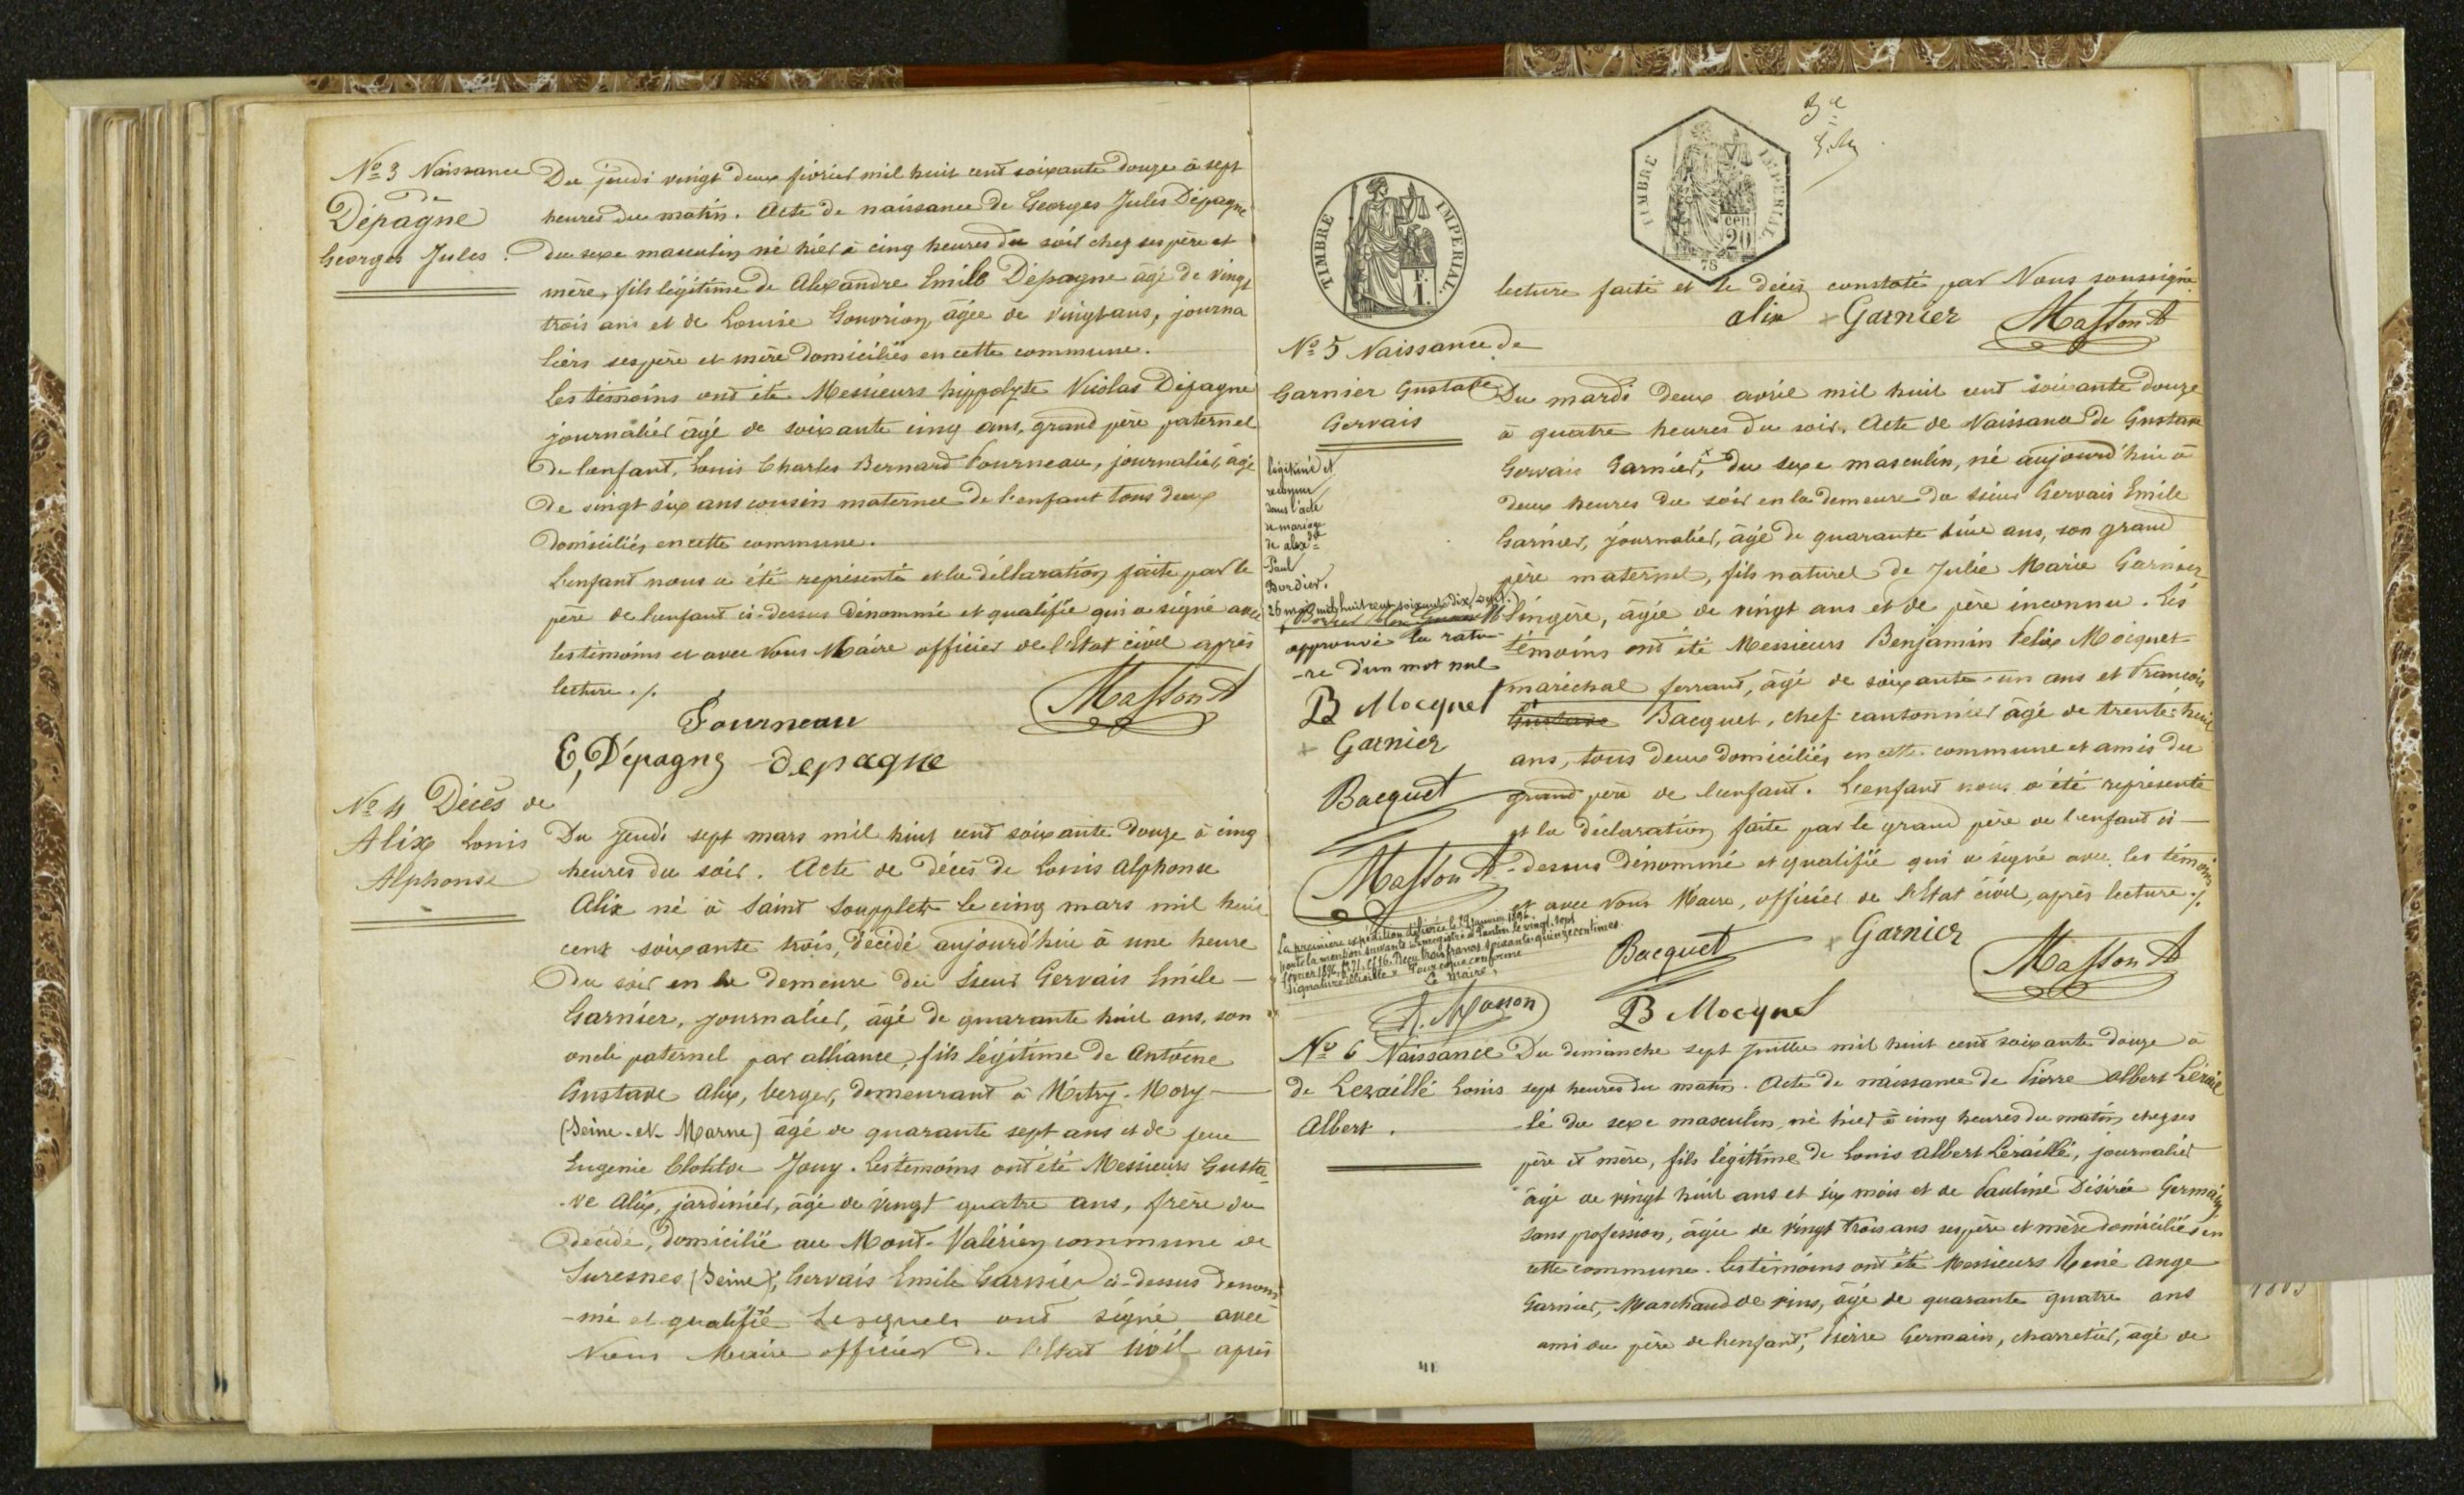 No 3 Naissance
De
Dépagne
Georges Jules.
Du jeudi vingt deux février mil huit cent soixante douze à sept
heures du matin. Acte de naissance de Georges Jules Dépagne
du sexe masculin né hier à cinq heures du soir chez ses père et
mère, fils légitime de Alexandre Emile Dépagne âgé de vingt
trois ans et de Louise Gouvrion, âgée de vingt ans, journa
liers ses père et mère domiciliés en cette commune.
Les témoins ont été Messieurs hippolyte Nicolas Dépagne
journalier âgé de soixante cinq ans, grand père paternel
de l'enfant, Louis Charles Bernard Fourneau, journalier, âgé
de vingt six ans cousin maternel de l'enfant tous deux
domiciliés en cette commune.
L'enfant nous a été représenté et la déclaration faite par le
père de l'enfant ci-dessus dénommé et qualifié qui a signé avec
les témoins et avec Nous Maire officier de l'Etat civil après
lecture ./.
Fourneau
Masson A
E, Dépagne depagne
No 4 Décès de
Alix Louis
Alphonse
Du jeudi sept mars mil huit cent soixante douze à cinq
heures du soir. Acte de décès de Louis Alphonse
Alix né à Saint Soupplets le cinq mars mil huit
cent soixante trois, décédé aujourd'hui à une heure
du soir en la demeure du Sieur Gervais Emile
Garnier, journalier, âgé de quarante huit ans, son
oncle paternel par alliance, fils légitime de Antoine
Gustave Alix, berger, demeurant à Mitry-Mory
(Seine-et-Marne) âgé de quarante sept ans et de feue
Eugenie Clotilde Jouy. Les témoins ont été Messieurs Gusta
-ve Alix, jardinier, âgé de vingt quatre ans, frère du
décédé, domicilié au Mont-Valérien commune de
Suresnes (Seine), Gervais Emile Garnier ci-dessus dénom
-mé et qualifié lesquels ont signé avec
Nous Maire officier de l'Etat civil après
TIMBRE IMPERIAL
F. 1.
TIMBRE IMPERIAL
cen 20
78
lecture faite et le décès constaté par Nous soussigné
alix Garnier Masson A
No 5 Naissance de
Garnier Gustave
Gervais
légitimé et
reconnu
dans l'acte
de mariage
de alexdre
Paul
Bordier.
26 mai mil huit cent soixante dix sept.
approuvé la ratu-
-re d'un mot nul
B Mocquet
Garnier
Bacquet
Masson A
Du mardi deux avril mil huit cent soixante douze
à quatre heures du soir. Acte de Naissance de Gustave
Gervais Garnier, du sexe masculin, né aujourd'hui à
deux heures du soir en la demeure du sieur Gervais Emile
Garnier, journalier, âgé de quarante huit ans, son grand
père maternel, fils naturel de Julie Marie Garnier
lingère, âgée de vingt ans et de père inconnu. Les
témoins ont été Messieurs Benjamin Felix Mocquet
maréchal ferrant, âgé de soixante-un ans et François
Gustave Bacquet, chef cantonnier âgé de trente-huit
ans, tous deux domiciliés en cette commune et amis du
grand père de l'enfant. L'enfant nous a été représenté
et la déclaration faite par le grand père de l'enfant ci-
-dessus dénommé et qualifié qui a signé avec les témoins
et avec Nous Maire, officier de l'Etat civil, après lecture ./.
La première expédition délivrée le 29 janvier 1896
porte la mention suivante : Enregistré à Pantin le vingt-sept
février 1896, fo 71, co 16. Reçu trois francs soixante-quinze centimes.
Signature illisible. Pour copie conforme
Le Maire,
A. Masson
Bacquet Garnier
Masson A
B Mocquet
No 6 Naissance
de Lezaillé Louis
Albert.
Du dimanche sept juillet mil huit cent soixante douze à
sept heures du matin. Acte de naissance de Pierre Albert Lézail
-lé du sexe masculin, né hier à cinq heures du matin, chez ses
père et mère, fils légitime de Louis Albert Lézaillé, journalier
âgé de vingt huit ans et six mois et de Pauline Désirée Germain
sans profession, âgée de vingt trois ans ses père et mère domiciliés en
cette commune. Les témoins ont été Messieurs René Ange
Garnier, Marchand de vins, âgé de quarante quatre ans
ami du père de l'enfant, Pierre Germain, charretier, âgé de